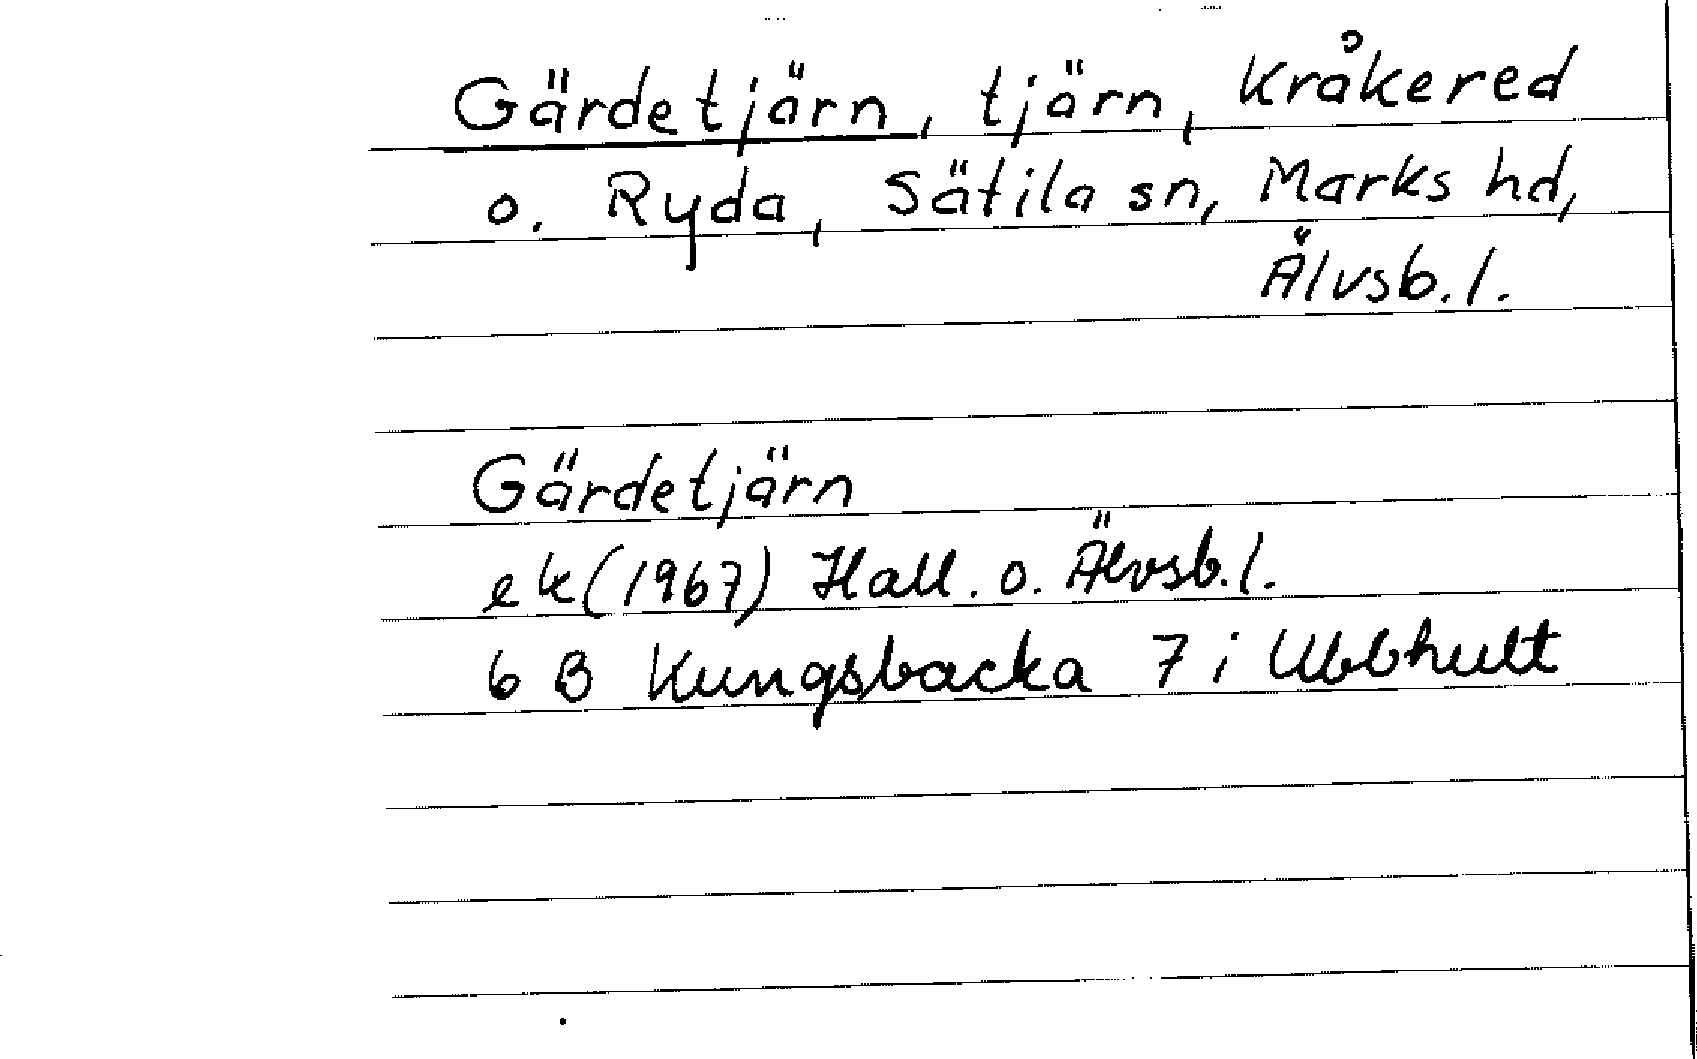 Gärdetjärn, tjärn, Kråkered
o. Ryda, Sätila sn, Marks hd,
Älvsb. l.
Gärdetjärn
ek (1967) Hall. o. Älvsb. l.
6 B Kungsbacka 7 i Ubbhult